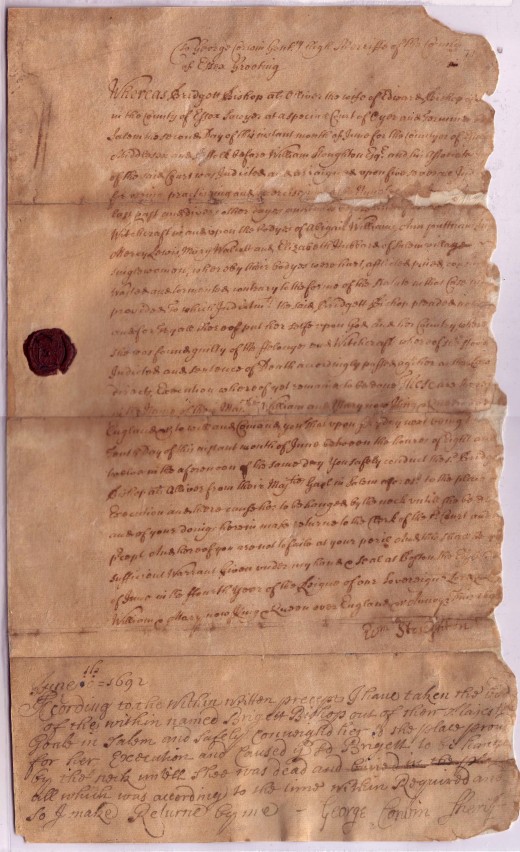 To George Corwin Gentm high Sheriffe of the County
of Essex Greeting
Whereas Bridgett Bishop als Oliver the wife of Edward Bishop
in the County of Essex Sawyer at a speciall Court of Oyer and Terminer
Salem the second Day of this instant month of June for the Countyes of
Middlesex and Suffolk before William Stoughton Esqr and his Associates
of the said Court was Indicted and arraigned upon five severall Indictments
for using practiseing and exercising
last past and divers other dayes
Witchcraft in and upon the bodyes of Abigail Williams Ann puttnam
Mercy Lewis Mary Walcott and Elizabeth Hubbard of Salem village
singlewomen, whereby their bodyes were hurt, afflicted pined
and tormented contrary to the forme of the Statute in that Case
provided To which Indictmts the said Bridgett Bishop pleaded
and for Tryall thereof put her selfe upon God and her Country where
she was found guilty of the ffelonyes and Witchcrafts whereof she stood
Indicted and sentence of Death accordingly passed agt her as the Law
directs Execution whereof yet remaines to be done These are
Maties William and Mary now King & Queen
England &c to will and Comand you That upon fryday next being
Tenth Day of this instant month of June between the houres of Eight and
twelve in the aforenoon of the same day You safely conduct the sd Bridgett
Bishop als Oliver from their Maties Gaol in Salem aforesd to the place
Execution and there cause her to be hanged by the neck untill she be
and of your doings herein make returne to the Clerk of the sd Court and
precept And hereof you are not to faile at your peril And this shall be
sufficient Warrant Given under my hand & seal at Boston the Eighth
of June in the ffourth Year of the Reigne of our Sovereigne Lord &
William & Mary now King & Queen over England &c Annoq
Wm Stoughton
June 1692
According to the Within Written precept I have taken the body
of the within named Brigett Bishop out of their Majesties
Goale in Salem and Safely Conveighd her to the place provided
for her Execution and Caused ye sd Brigett to be hanged
by the neck untill Shee was dead and buried in the place
all which was according to the time within Required and
So I make Returne by me
George Corwin Sheriff